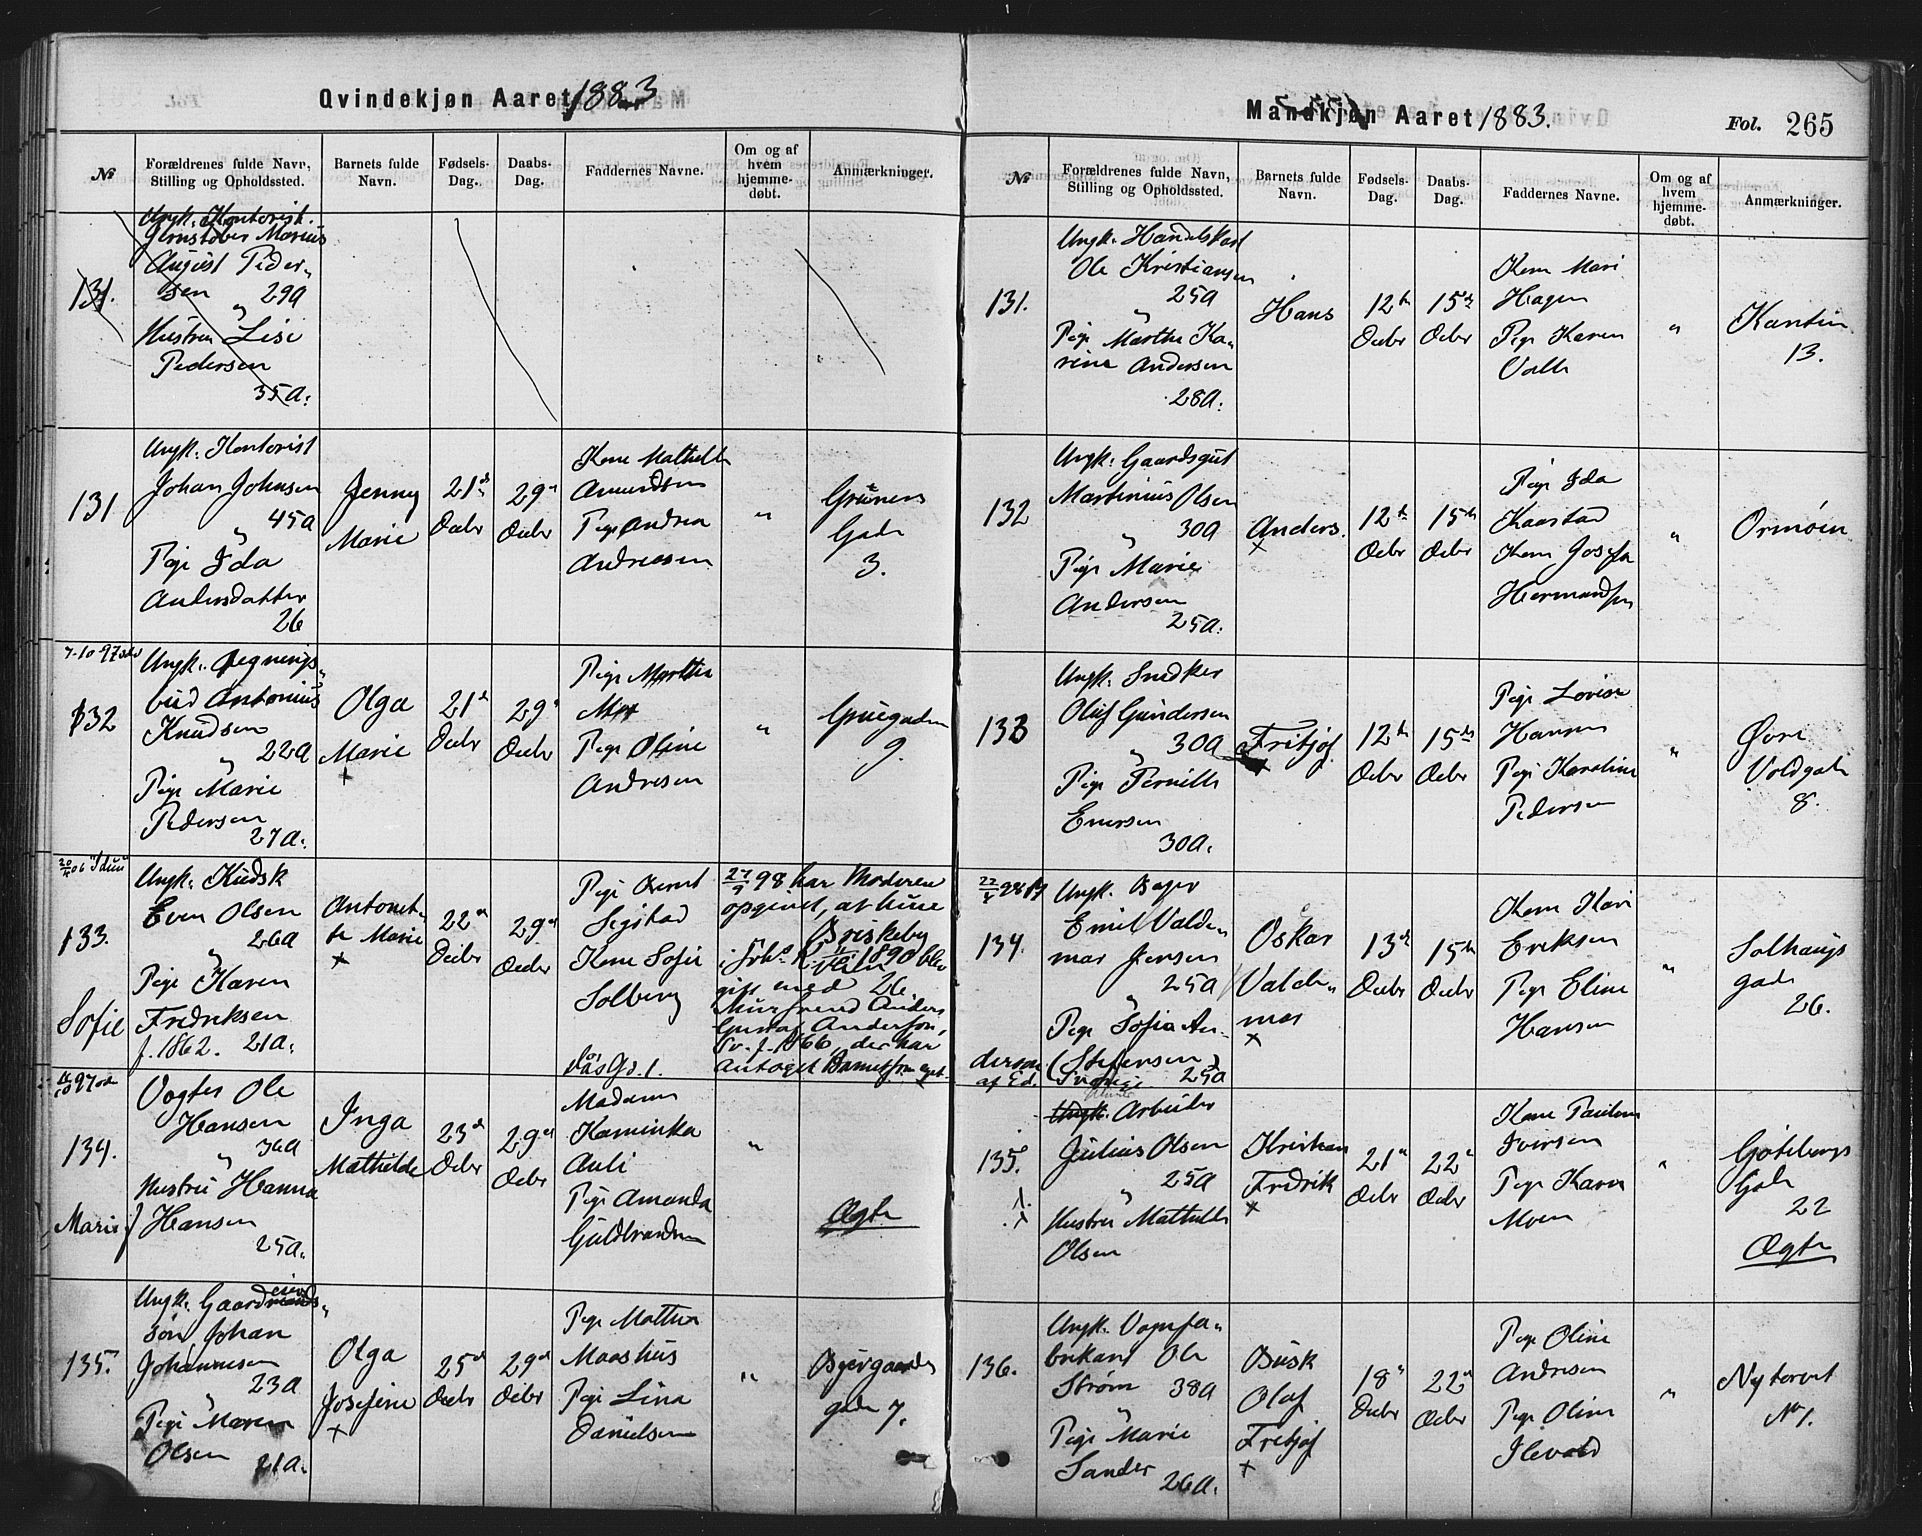 Qvindekjøn Aaret 1883
№
Forældrenes fulde Navn,
Stilling og Opholdssted.
Barnets fulde
Navn.
Fødsels-
Dag.
Daabs-
Dag.
Faddernes Navne.
Om og af
hvem
hjemme-
døbt.
Anmærkninger.
131.
Ungk. Kontorist.
Marius
August Peder„
sen 29a
„
Hustru Lise
Pedersen
35a.
131
Ungk. Kontorist
Johan Johnsen
45a
„
Pige Ida
Andersdatter
26
Jenny
Marie
21de
Decbr
29de
Decbr
Kone Mathilde
Amundsen
Pige Andrea
Andreasen
„
Grüners
Gade
3.
7-10-97
132
Ungk. Regnings„
bud Antonius
Knudsen
22a
„
Pige Marie
Pedersen
27a.
Olga
Marie
+
21de
Decbr
29de
Decbr
Pige Marthe
Moe
Pige Oline
Andresen
„
Gruegaden
9.
20/4 06
133.
Sofie
Ungk. Kudsk
Even Olsen
26a
„
Pige Karen
Fredriksen
f. 1862. 21a.
Antonet„
te Marie
+
22de
Decbr
29de
Decbr
Pige Bernt
Segstad
Kone Sofie
Solberg
27/9 98 har Moderen
opgivet, at hun
Briskeby
i 1890 blev
gift med 26.
Murսvend Anders
Gustaf Anderson,
f. 1866, der har
antaget Barnet som eget.
97
134.
Marie
Vogter Ole
Hansen
36a
„
Hustru Hanna
Hansen
25a.
Inga
Mathilde
23de
Decbr
29de
Decbr
Madam
Kaminka
Auli
Pige Amanda
Guldbrandsen
„
Ægte
135.
Ungk. Gaardeier„
søn Johan
Johannesen
23a
„
Pige Maren
Olsen 21a.
Olga
Josefine
+
25de
Decbr
29de
Decbr
Pige Mathea
Maashus
Pige Lina
Danielsen
„
Bjergaards
gade 7.
Mandkjøn Aaret 1883.
Fol. 265
№
Forældrenes fulde Navn,
Stilling og Opholdssted.
Barnets fulde
Navn.
Fødsels-
Dag.
Daabs-
Dag.
Faddernes Navne.
Om og af
hvem
hjemme-
døbt.
Anmærkninger.
131.
Ungk. Handelskarl
Ole Kristiansen
25a
„
Pige Marthe Ka„
rine Andersen
28a.
Hans
12te
Decbr
15de
Decbr
Kone Mari
Hagen
Pige Karen
Volle
„
Kantin
13.
132
Ungk. Gaardsgut
Martinius Olsen
30a
„
Pige Marie
Andersen
25a.
Anders.
+
12te
Decbr
15de
Decbr
Pige Ida
Kaastad
Kone Josefa
Hermandsen
„
Ormøen
133
Ungk. Snedker
Oluf Gundersen
30a
„
Pige Pernille
Enersen
30a.
Fritjof.
12te
Decbr
15de
Decbr
Pige Lovise
Hansen
Pige Karoline
Pedersen
„
Øvre
Voldgade
8.
22/4 98
134.
Ungk. Bager
Emil Valde„
mar Jensen
25a
„
Pige Sofia An„
derson (Stefensen)
af Ed. Sverige 25a
Oskar
Valde„
mar
+
13de
Decbr
15de
Decbr
Kone Kari
Eriksen
Pige Eline
Hansen
„
Solhaugs
gade
26.
135.
Ungk. Arbeider
Julius Olsen
25a
„
Hustru Mathilde
Olsen
Kristian
Fredrik
+
21de
Decbr
22de
Decbr
Kone Pauline
Iversen
Pige Karen
Moen
„
Gøteborgs
Gade
22
Ægte
136.
Ungk. Vognfa„
brikant Ole
Strøm 38a
„
Pige Marie
Sander 26a.
Busk
Olaf
Fritjof
+
18de
Decbr
22de
Decbr
Pige Oline
Andresen
Pige Oline
Ilevold
„
Nytorvet
№ 1.